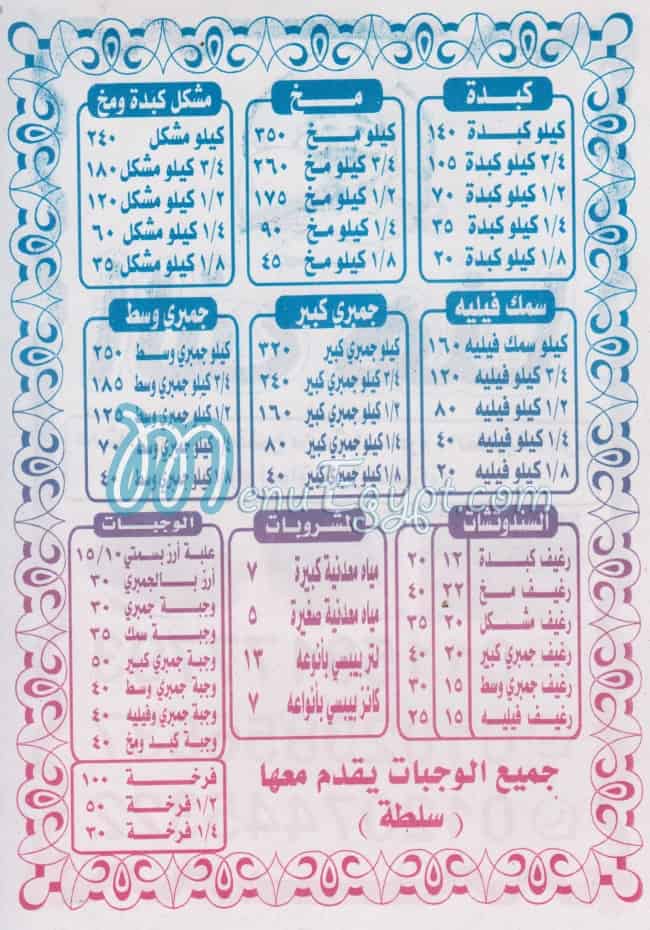 كبدة
كيلو كبدة ١٤٠
٣/٤ كيلو كبدة ١٠٥
١/٢ كيلو كبدة ٧٠
١/٤ كيلو كبدة ٣٥
١/٨ كيلو كبدة ٢٠
مـخ
كيلو مـخ ٣٥٠
٣/٤ كيلو مخ ٢٦٠
١/٢ كيلو مخ ١٧٥
١/٤ كيلو مخ ٩٠
١/٨ كيلو مخ ٤٥
مشكل كبدة ومخ
كيلو مشكل ٢٤٠
٣/٤ كيلو مشكل ١٨٠
١/٢ كيلو مشكل ١٢٠
١/٤ كيلو مشكل ٦٠
١/٨ كيلو مشكل ٣٥
سمك فيليه
كيلو سمك فيليه ١٦٠
٣/٤ كيلو فيليه ١٢٠
١/٢ كيلو فيليه ٨٠
١/٤ كيلو فيليه ٤٠
١/٨ كيلو فيليه ٢٠
جمبري كبير
كيلو جمبري كبير ٣٢٠
٣/٤ كيلو جمبري كبير ٢٤٠
١/٢ كيلو جمبري كبير ١٦٠
١/٤ كيلو جمبري كبير ٨٠
١/٨ كيلو جمبري كبير ٤٠
جمبري وسط
كيلو جمبري وسط ٢٥٠
٣/٤ كيلو جمبري وسط ١٨٥
١/٢ كيلو جمبري وسط ١٢٥
١/٤ كيلو جمبري وسط ٧٠
١/٨ كيلو جمبري وسط ٤٠
MenuEgypt.com
السندوتشات
رغيف كبدة ١٢ ٢٠
رغيف مخ ٢٢ ٤٠
رغيف مشكل ٢٠ ٣٥
رغيف جمبري كبير ٢٠ ٤٠
رغيف جمبري وسط ١٥ ٣٠
رغيف فيليه ١٥ ٢٥
المشروبات
مياه معدنية كبيرة ٧
مياه معدنية صغيرة ٥
لتر بيبسي بأنواعه ١٣
كانز بيبسي بأنواعه ٧
الوجبات
علبة أرز بسمتي ١٥/١٠
أرز بالجمبري ٣٠
وجبة جمبري ٣٠
وجبة سمك ٣٥
وجبة جمبري كبير ٥٠
وجبة جمبري وسط ٤٠
وجبة جمبري وفيليه ٤٠
وجبة كبد ومخ ٤٠
فرخة ١٠٠
١/٢ فرخة ٥٠
١/٤ فرخة ٣٠
جميع الوجبات يقدم معها
( سلطة )